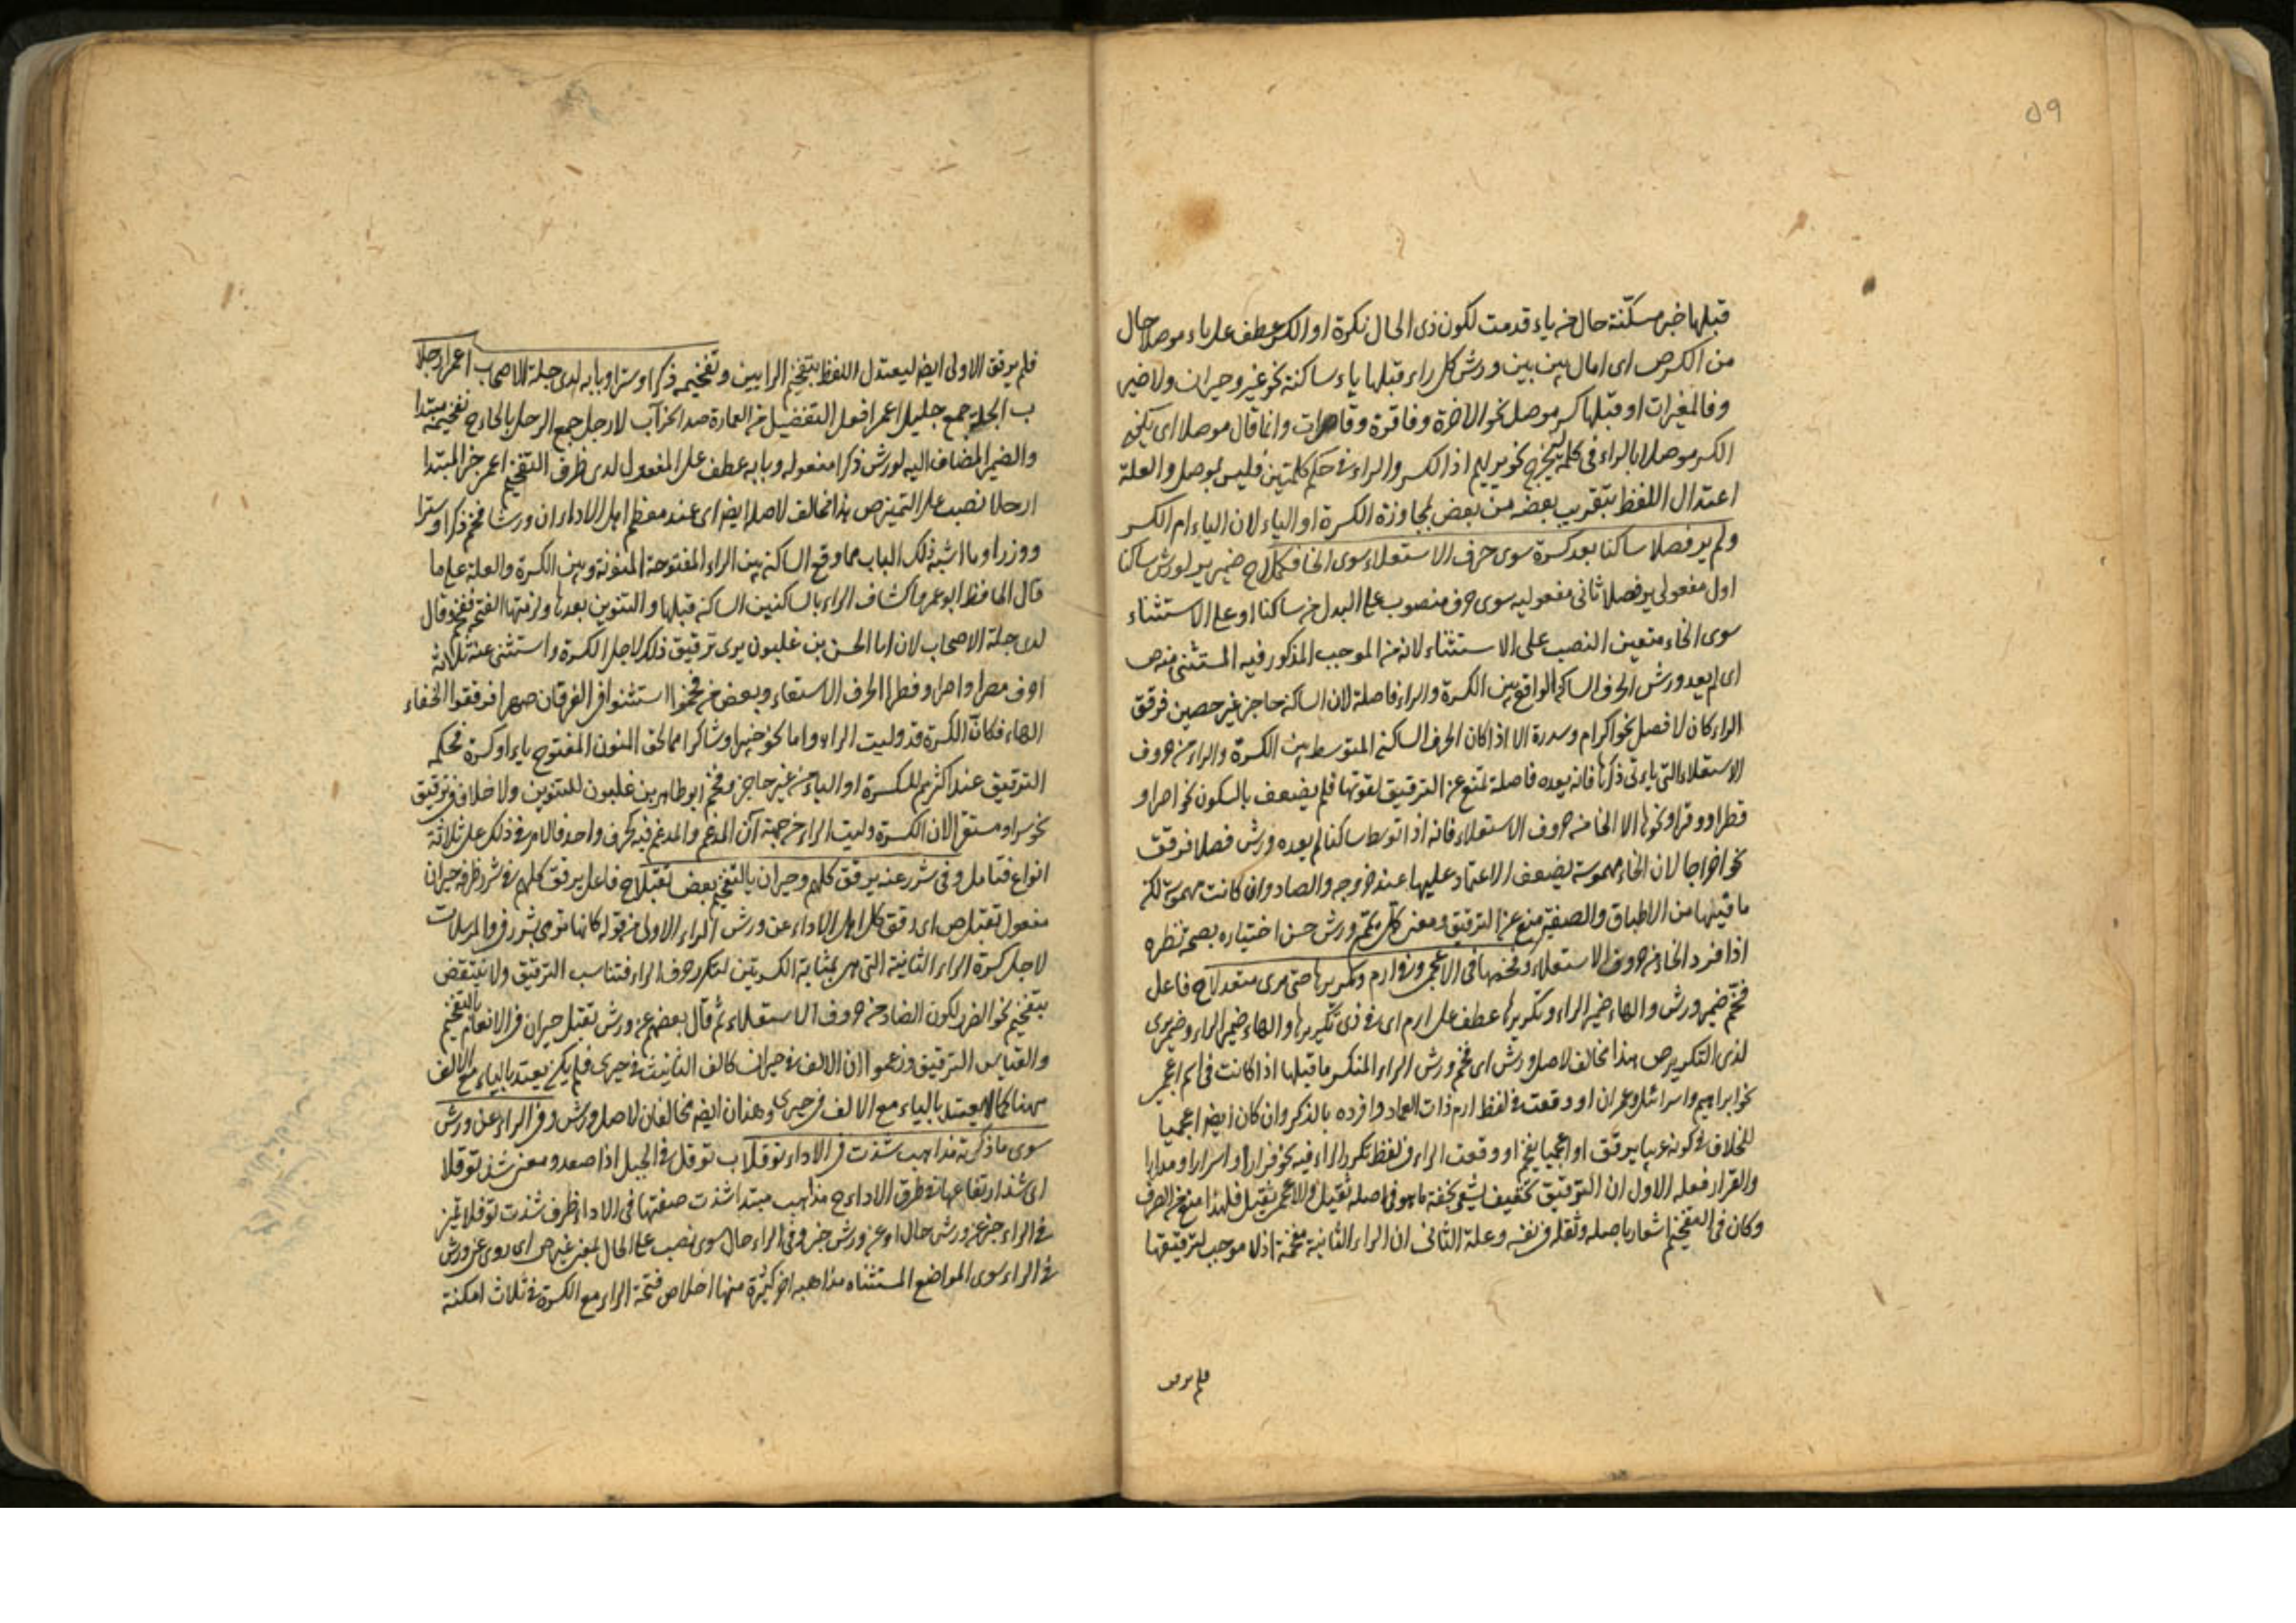 ٥٩
قبلها خبر مسكنة حال من ياء قدمت لكون ذى الحال نكرة او الكسر عطف على ياء موصلا حال
من الكسر ص اى امال بين بين ورش كل راء قبلها ياء ساكنة نحو غير وحيران ولا ضير
وفالمغيرات او قبلها كسر موصل نحو الآخرة وفاقرة وقاصرات وانما قال موصلا اى يكون
الكسر موصلا بالراء فى كلمة ليخرج نحو بربهم اذ الكسر والراء فى حكم كلمتين فليس بموصل والعلة
اعتدال اللفظ بتقريب بعضه من بعض لمجاورة الكسرة او الياء لان الياء ام الكسر
ولم ير فصلا ساكنا بعد كسرة سوى حرف الاستعلاء سوى الخا فكملا ح ضمير ير لورش ساكنا
اول مفعولى ير فصلا ثانى مفعوليه سوى حرف منصوب على البدل من ساكنا او على الاستثناء
سوى الخاء متعين النصب على الاستثناء لانه من الموجب المذكور فيه المستثنى منه ص
اى لم يعد ورش الحرف الساكن الواقع بين الكسرة والراء فاصلة لان الساكن حاجز غير حصين فرقق
الراء كان لا فصل نحو اكرام وسدرة الا اذا كان الحرف الساكن المتوسط بين الكسرة والراء من حروف
الاستعلاء التى ياءتى ذكرها فانه يعده فاصلة تمنع عن الترقيق لقوتها فلم يضعف بالسكون نحو اصرا و
قطرا ووقرا ونحوها الا الخا من حروف الاستعلاء فانه اذا توسط ساكنا لم يعده ورش فصلا فرقق
نحو اخراجا لان الخاء مهموسة يضعف الاعتماد عليها عند خروجه والصاد وان كانت مهموسة لكن
ما فيها من الاطباق والصفير منع عن الترقيق ومعنى كمل تمم ورش حسن اختياره بصحة نظره
اذا فرد الخاء من حروف الاستعلاء وفخمها فى الاعجمى وفى ارم وتكريرها حتى يرى متعدلا ح فاعل
فخم ضمير ورش والهاء ضمير الراء وتكريرها عطف على ارم اى فى ذى تكريرها والهاء ضمير الراء وضمير يرى
لذى التكرير ص هذا مخالف لاصل ورش اى فخم ورش الراء المنكسر ما قبلها اذا كانت فى اسم اعجمى
نحو ابراهيم واسرائل وعمران او وقعت فى لفظ ارم ذات العماد وافرده بالذكر وان كان ايضا اعجميا
للخلاف فى كونه عربيا يرقق او اعجميا يفخم او وقعت الراء فى لفظ تكرر الراء فيه نحو فرارا و اسرارا ومدرارا
والقرار فعله الاول ان الترقيق تخفيف يشعر بخفة ما هو فى اصله ثقيل والاعجمى ثقيل فلهذا منع من الصرف
وكان فى التفخيم اشعار باصله وثقله فى نفسه وعلة الثانى ان الراء الثانية مفخمة اذ لا موجب لترقيقها
فلم يرقق
فلم يرقق الاولى ايضا ليعتدل اللفظ بتفخيم الرايين وتفخيمه ذكرا وسترا وبابه لدى جلة الاصحاب اعمر ارحلا
ب الجلة جمع جليل اعمر افعل التفضيل من العمارة ضد الخراب الارحل جمع الرحل بالحاء ح تفخيمه مبتدا
والضمير المضاف اليه لورش ذكرا مفعوله وبابه عطف على المفعول لدى ظرف التفخيم اعمر خبر المبتدا
ارحلا نصب على التمييز ص هذا مخالف لاصله ايضا اى عند معظم اهل الاداء ان ورشا فخم ذكرا وسترا
ووزرا وما اشبه ذلك الباب مما وقع الساكن بين الراء المفتوحة المنونة وبين الكسرة والعلة على ما
قال الحافظ ابو عمرو اكتناف الراء بالساكنين الساكن قبلها والتنوين بعدها ولزمتها الفتح ففخم وقال
لدى جلة الاصحاب لان ابا الحسن بن غلبون يرى ترقيق ذلك لاجل الكسرة واستثنى عنه ثلاثة
احرف مصرا واصرا وقطرا لحرف الاستعلاء وبعض من فخم استثنوا فى الفرقان صهرا فرققوا لخفاء
الهاء فكأن الكسرة قد وليت الراء واما نحو خبيرا وشاكرا مما لحق المنون المفتوح ياء او كسرة فحكمه
الترقيق عند اكثرهم للكسرة او الياء من غير حاجز وفخم ابو طاهر بن غلبون للتنوين ولا خلاف فى ترقيق
نحو سرا ومستقرا لان الكسرة وليت الراء من جهة أن المدغم والمدغم فيه كحرف واحد فالامر فى ذلك على ثلاثة
انواع فتامل وفى شرر عنه يرقق كلهم وحيران بالتفخيم بعض تقبلا ح فاعل يرقق كلهم فى شرر ظرفه حيران
مفعول تقبل ص اى رقق كل اهل الاداء عن ورش الراء الاولى من قوله كانها ترمى بشرر فى والمرسلات
لاجل كسرة الراء الثانية التى هى بمثابة الكسرتين لتكرر حرف الراء فتناسب الترقيق ولا ينتقض
بتفخيم نحو الضرر لكون الضاد من حروف الاستعلاء ثم قال بعضهم عن ورش تقبل حيران فى الانعام بالتفخيم
والقياس الترقيق وزعموا ان الالف فى حيران كالف التانيث فى حيرى فلم يكن يعتد بالياء مع الالف
ههنا كما لا يعتد بالياء مع الالف فى حيرى وهذان ايضا مخالفان لاصل ورش وفى الراء عن ورش
سوى ما ذكرته مذاهب شذت فى الاداء توقلا ب توقل فى الجبل اذا صعد ومعنى شذ توقلا
اى شذ ارتفاعها فى طرق الاداء ح مذاهب مبتدا شذت صفتها فى الاداء ظرف شذت توقلا تمييز
فى الراء خبر عن ورش حال او عن ورش خبر وفى الراء حال سوى نصب على الحال بمعنى غير ص اى روى عن ورش
فى الراء سوى المواضع المستثناه مذاهب اخر كثيرة منها اخلاص فتحة الراء مع الكسرة فى ثلاث امكنة